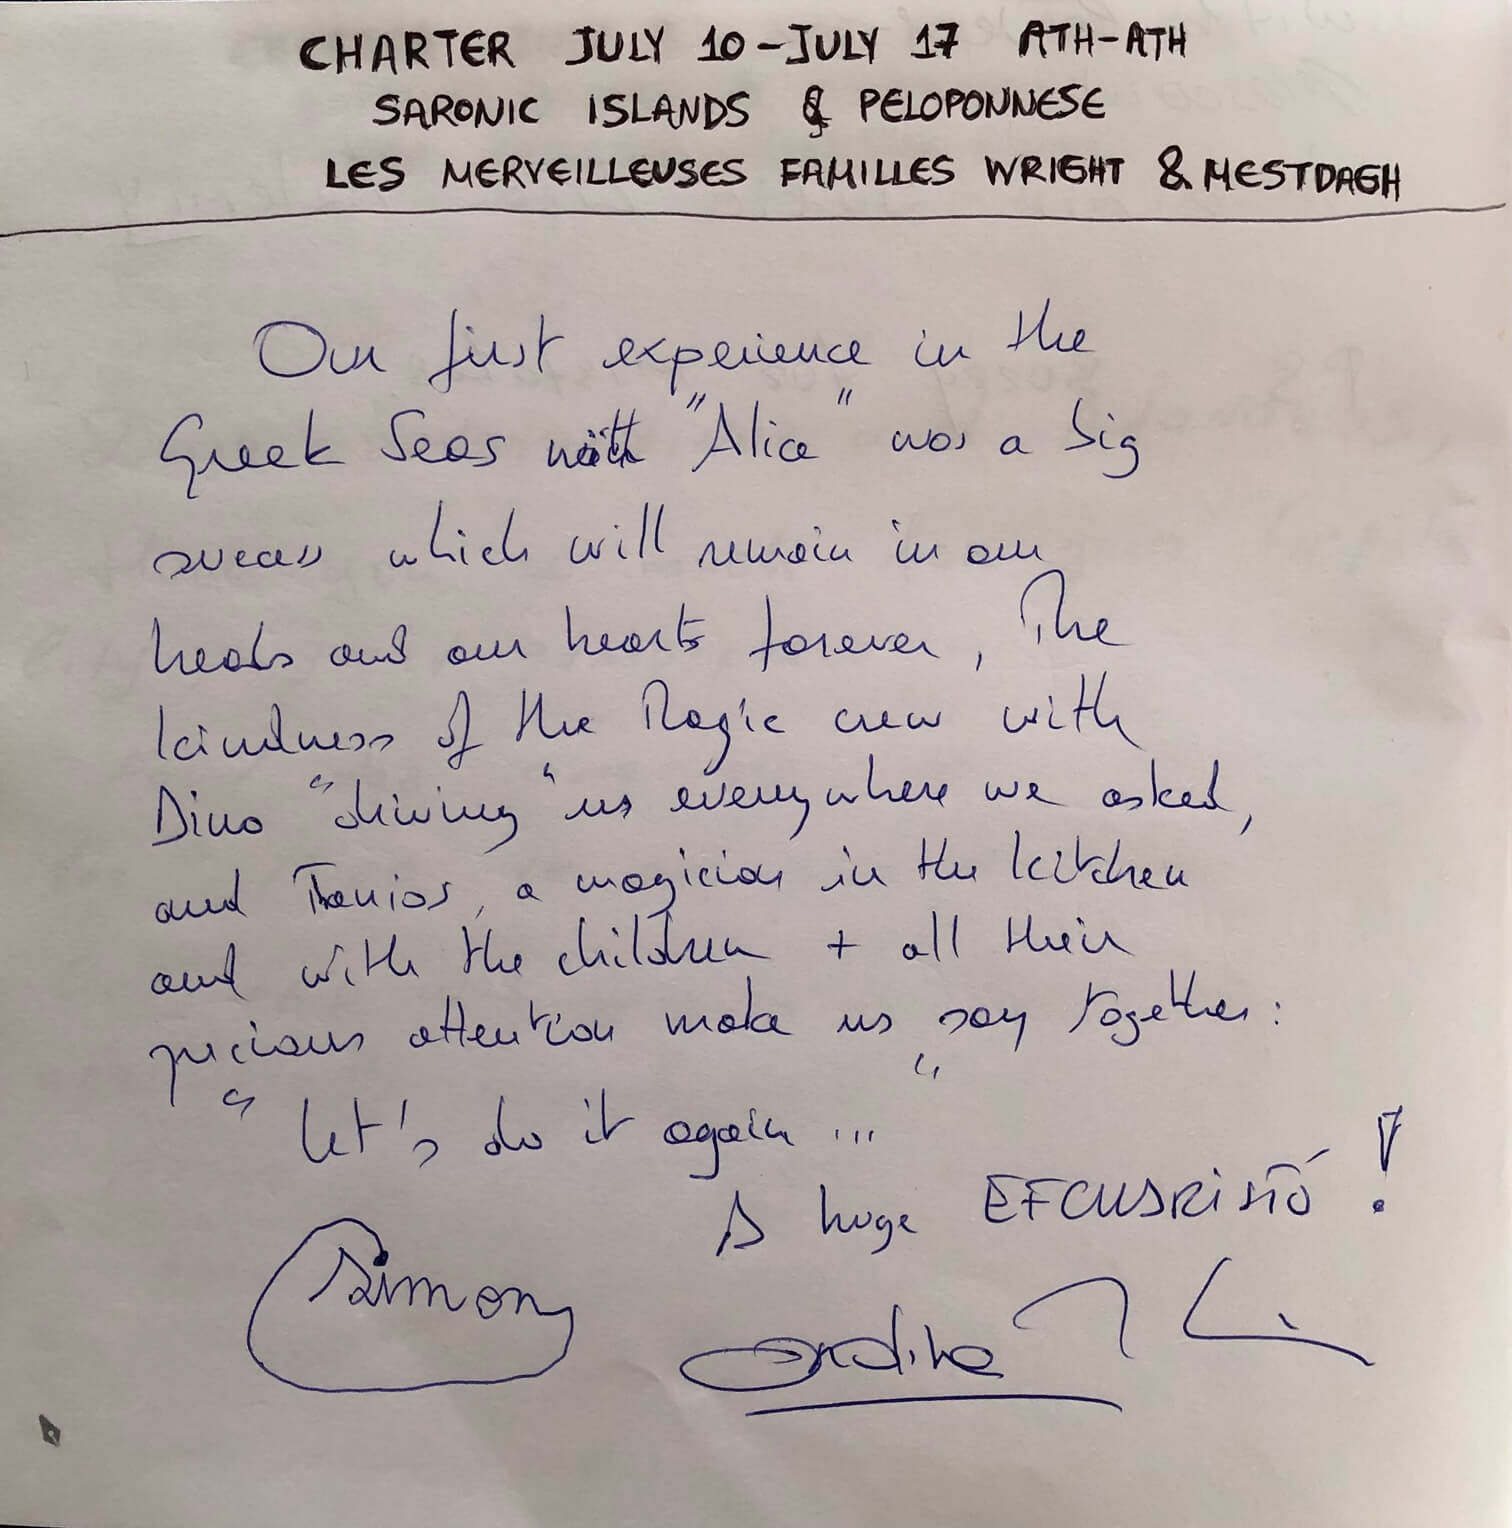 CHARTER JULY 10-JULY 17 ATH-ATH
SARONIC ISLANDS & PELOPONNESE
LES MERVEILLEUSES FAMILLES WRIGHT & MESTDAGH
Our first experience in the
Greek Seas with "Alice" was a big
success which will remain in our
heads and our hearts forever, The
kindness of the Magic crew with
Dino "driving" us everywhere we asked,
and Thanios, a magician in the kitchen
and with the children + all their
precious attention make us say together:
"let's do it again ..."
A huge EFCHARISTÓ!
Simon